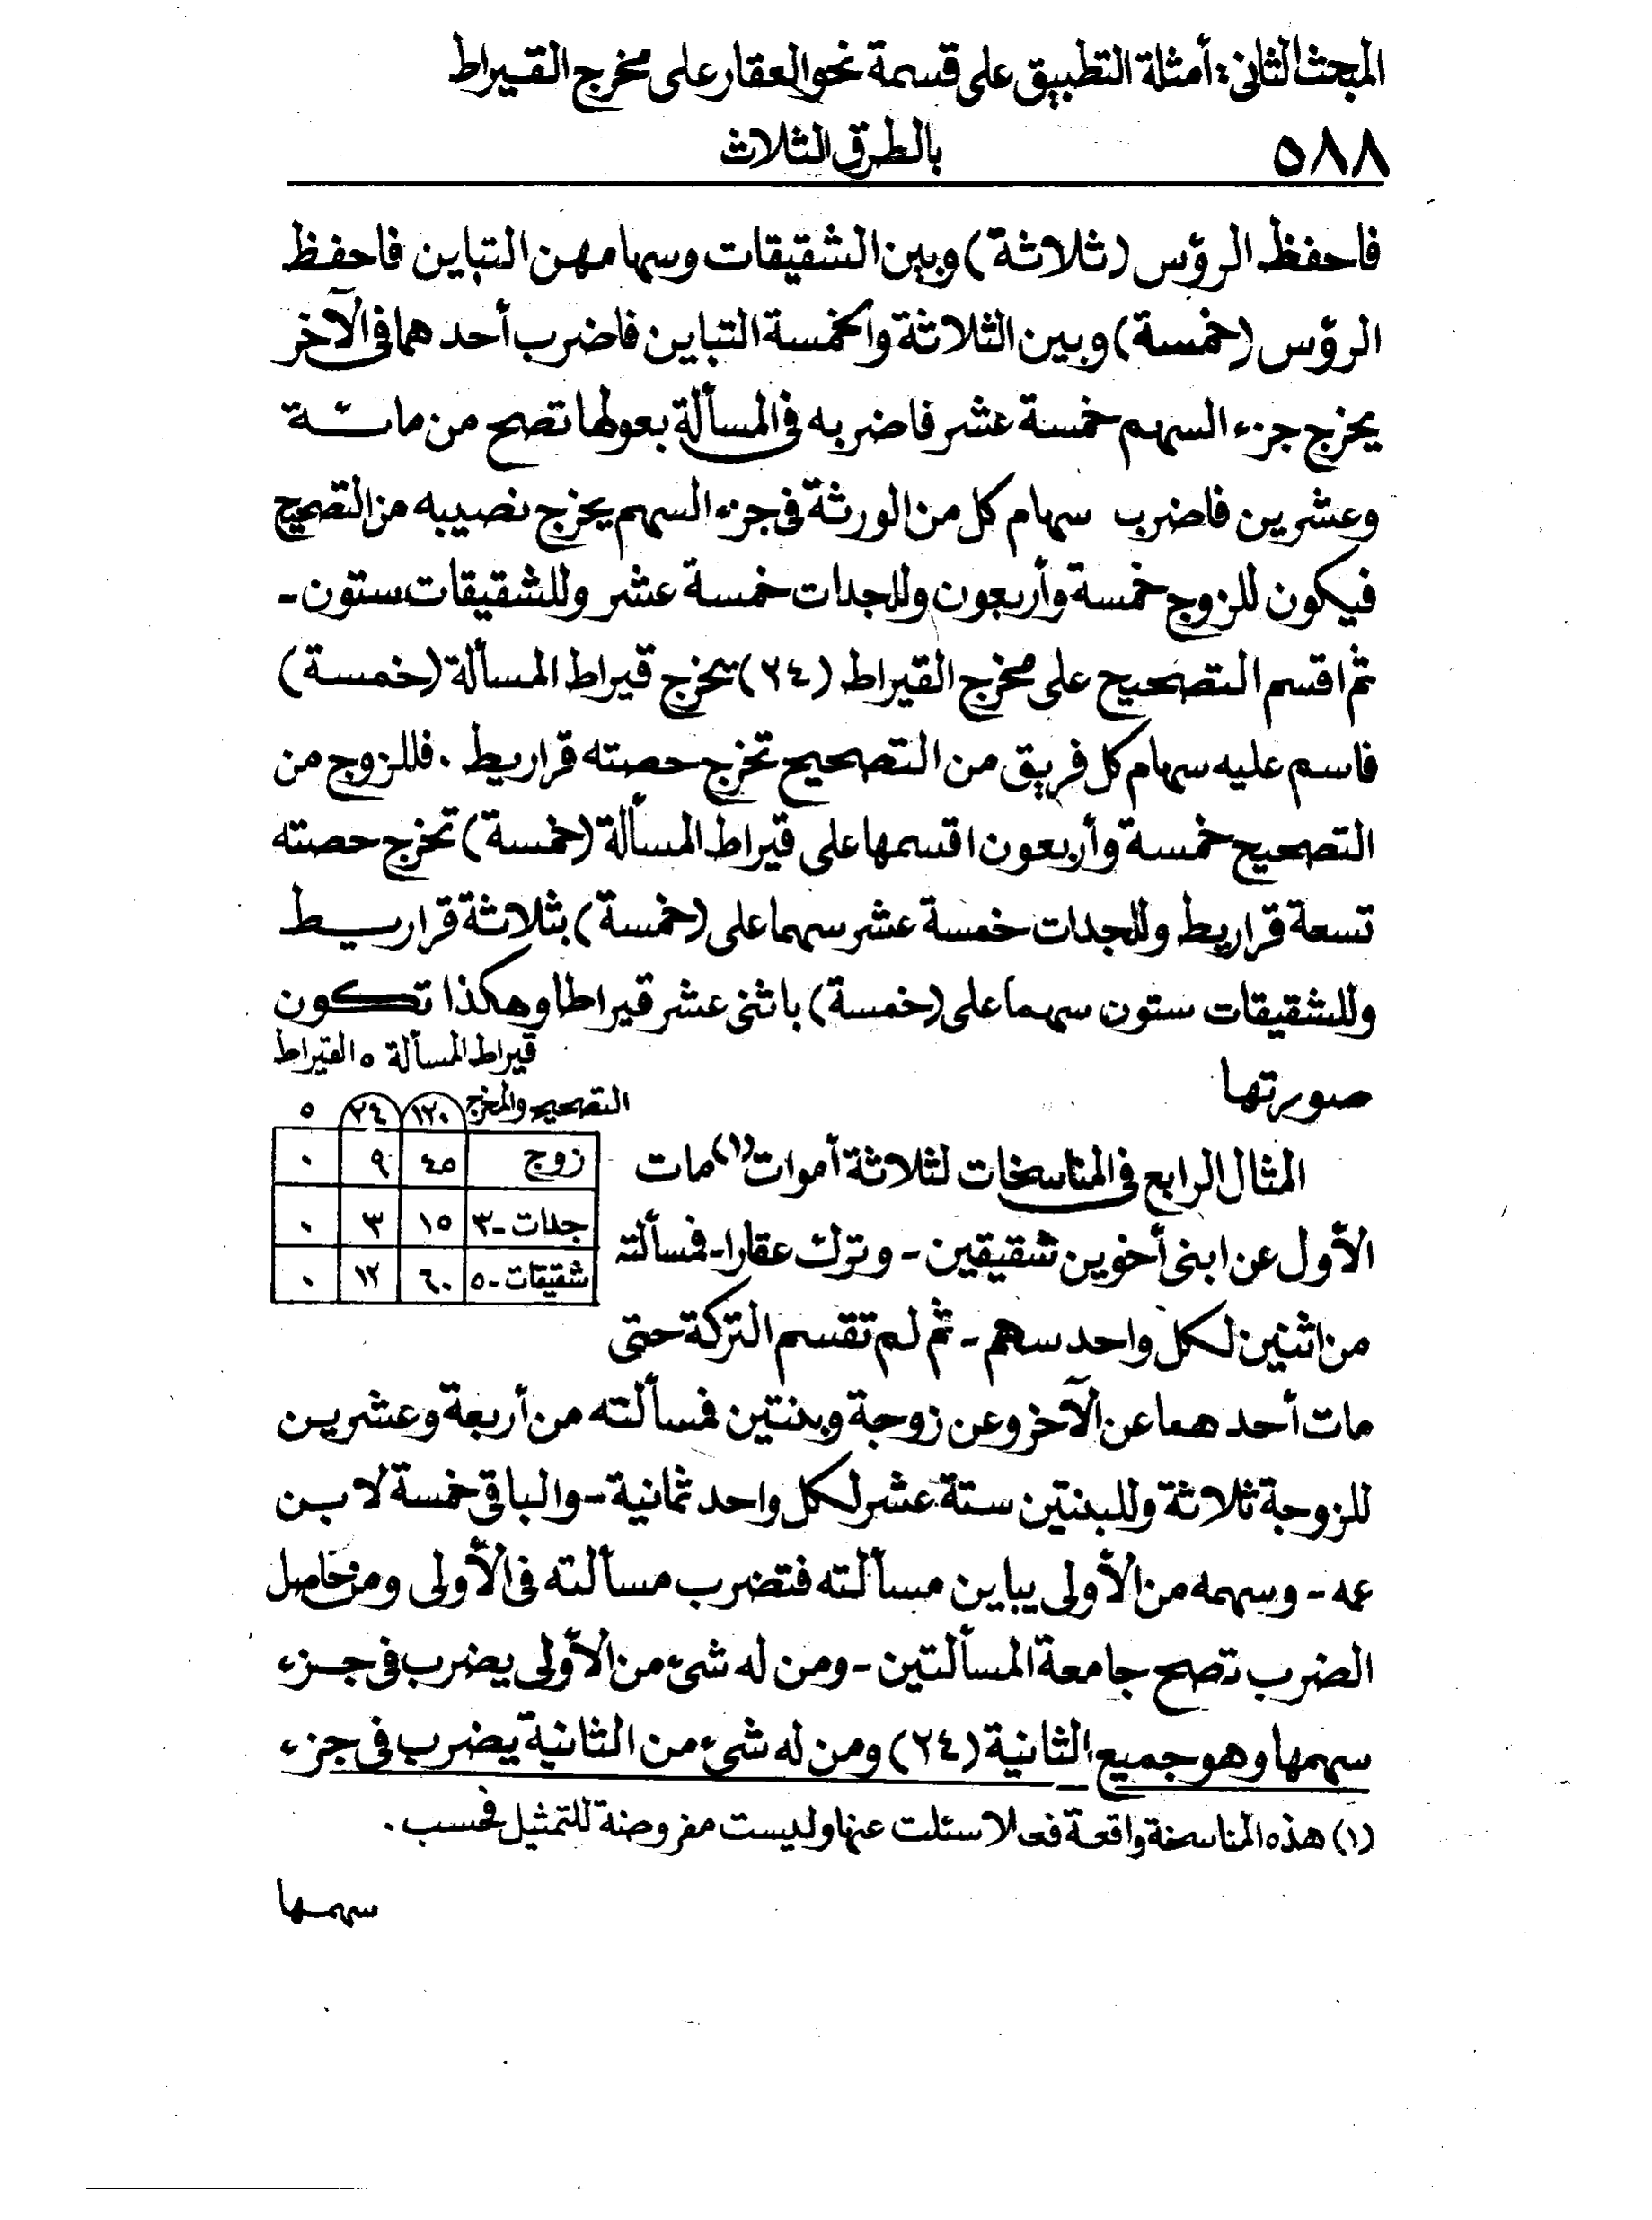 المبحث الثانى : أمثلة التطبيق على قسمة نحو العقار على مخرج القيراط
٥٨٨ بالطرق الثلاث
فاحفظ الرؤس (ثلاثة) وبين الشقيقات وسهامهن التباين فاحفظ
الرؤس (خمسة) وبين الثلاثة والخمسة التباين فاضرب أحدهما فى الآخر
يخرج جزء السهم خمسة عشر فاضربه فى المسألة بعولها تصح من مائة
وعشرين فاضرب سهام كل من الورثة فى جزء السهم يخرج نصيبه من التصحيح
فيكون للزوج خمسة وأربعون وللجدات خمسة عشر وللشقيقات ستون -
ثم اقسم التصحيح على مخرج القيراط (٢٤) يخرج قيراط المسألة (خمسة)
فاسم عليه سهام كل فريق من التصحيح تخرج حصته قراريط . فللزوج من
التصحيح خمسة وأربعون اقسمها على قيراط المسألة (خمسة) تخرج حصته
تسعة قراريط وللجدات خمسة عشر سهما على (خمسة) بثلاثة قراريط
وللشقيقات ستون سهما على (خمسة) باثنى عشر قيراطا وهكذا تكون
صورتها
قيراط المسألة ٥ القيراط
التصحيح والمخرج ١٢٠ ٢٤ ٥
زوج ٤٥ ٩ ٠
جدات - ٣ ١٥ ٣ ٠
شقيقات - ٥ ٦٠ ١٢ ٠
المثال الرابع فى المناسخات لثلاثة أموات (١) مات
الأول عن ابنى أخوين شقيقين - وترك عقارا - فمسألته
من اثنين لكل واحد سهم - ثم لم تقسم التركة حتى
مات أحدهما عن الآخر وعن زوجة وبنتين فمسألته من أربعة وعشرين
للزوجة ثلاثة وللبنتين ستة عشر لكل واحد ثمانية - والباقى خمسة لابن
عمه - وسهمه من الأولى يباين مسألته فتضرب مسألته فى الأولى ومن حاصل
الضرب تصح جامعة المسألتين - ومن له شئ من الأولى يضرب فى جزء
سهمها وهو جميع الثانية (٢٤) ومن له شئ من الثانية يضرب فى جزء
(١) هذه المناسخة واقعة فعلا سئلت عنها وليست مفروضة للتمثيل فحسب .
سهمها